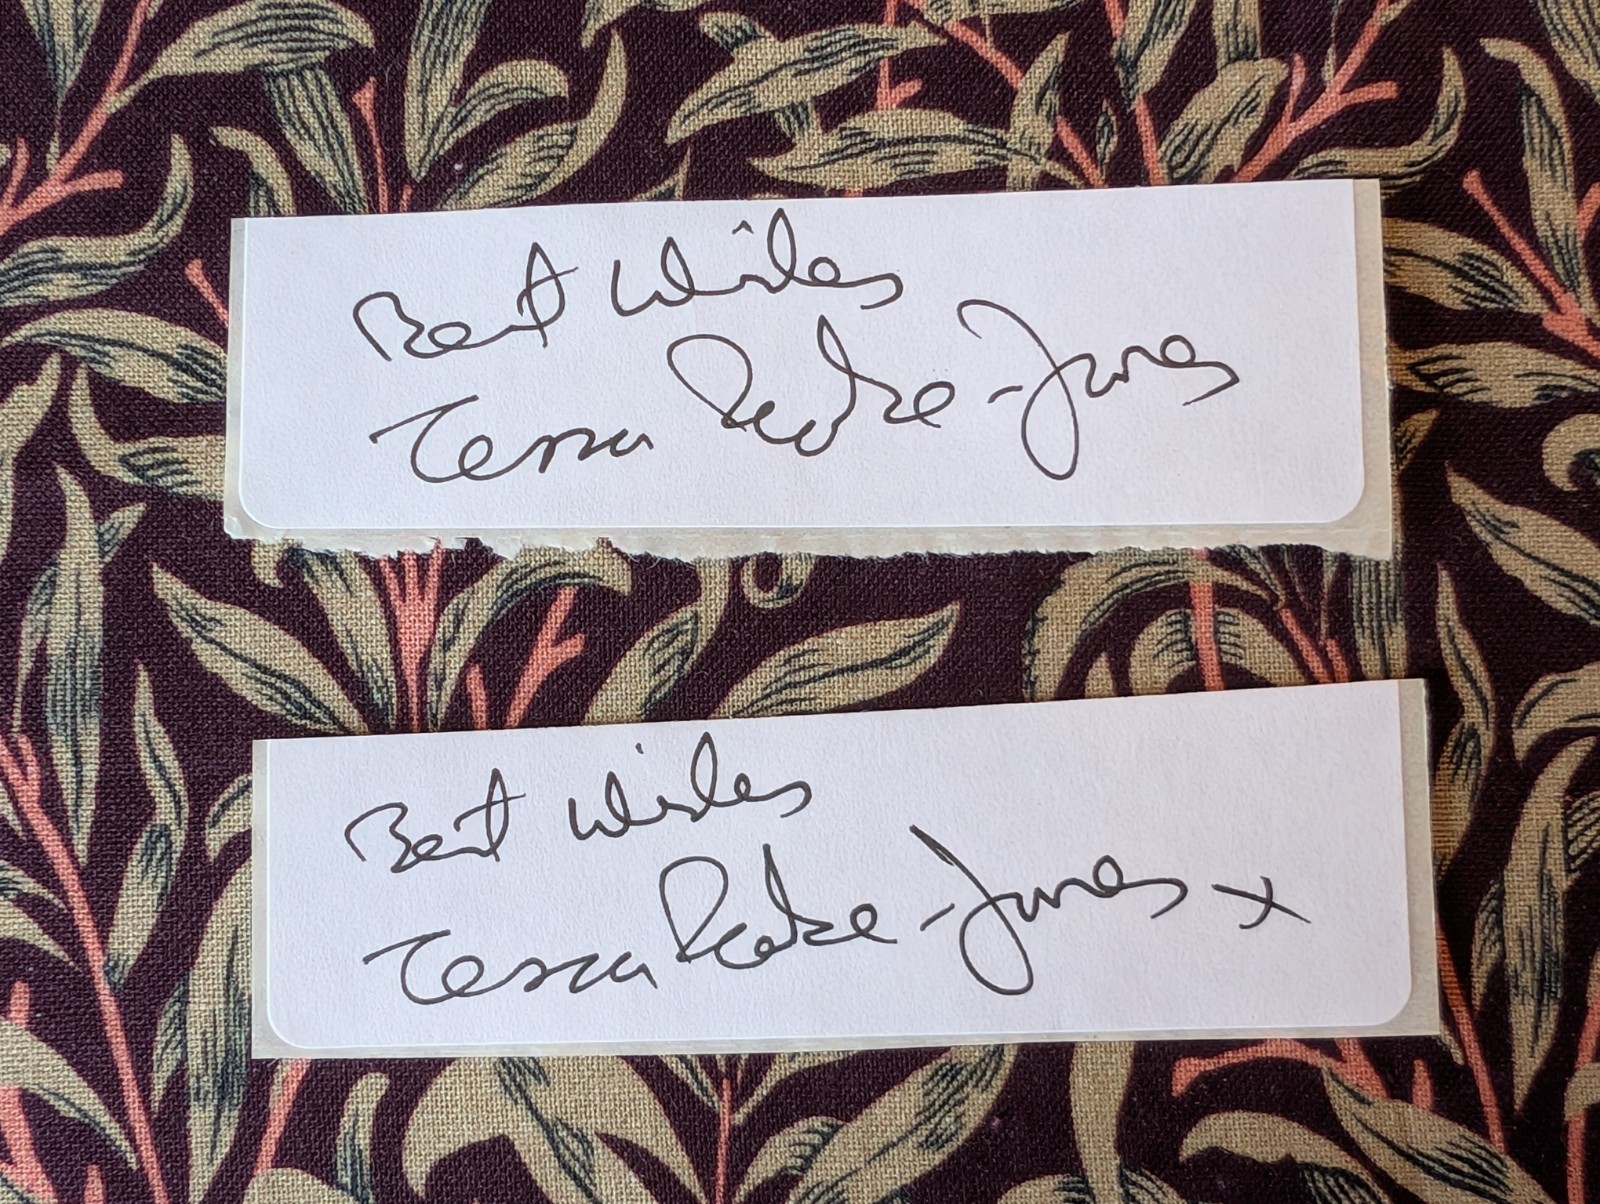 Best Wishes
Tessa Peake-Jones
Best Wishes
Tessa Peake-Jones x